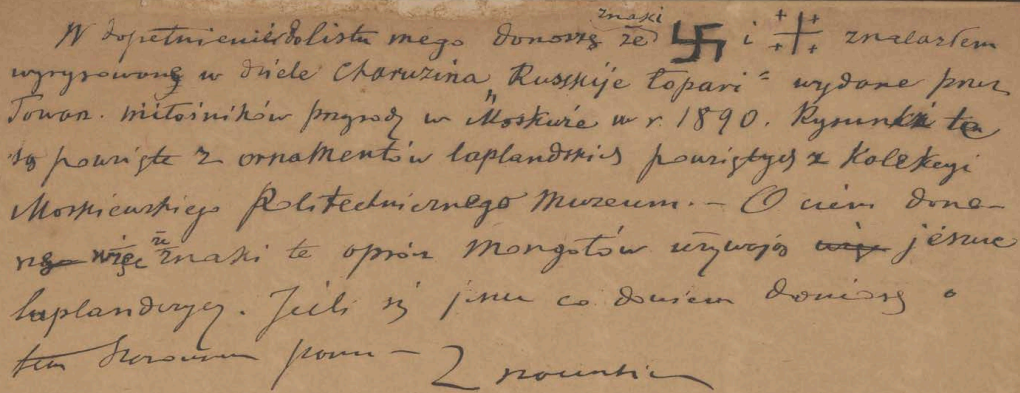 W dopełnieniu do listu mego donoszę że znaki 卐 i znalazłem
wyrysowane w dziele Charuzina „Russkije Łopari" wydane przez
Towar. miłośników przyrody w Moskwie w r. 1890. Rysunki te
są powzięte z ornamentów laplandskich powziętych z Kolekcyi
Moskiewskiego Politechnicznego Muzeum. – O ciem dono-
szę więc że znaki te oprócz Mongołów używają jeszcze
laplandczycy. Jeśli się jesz co dowiem doniosę o
tem Szanownemu panu –